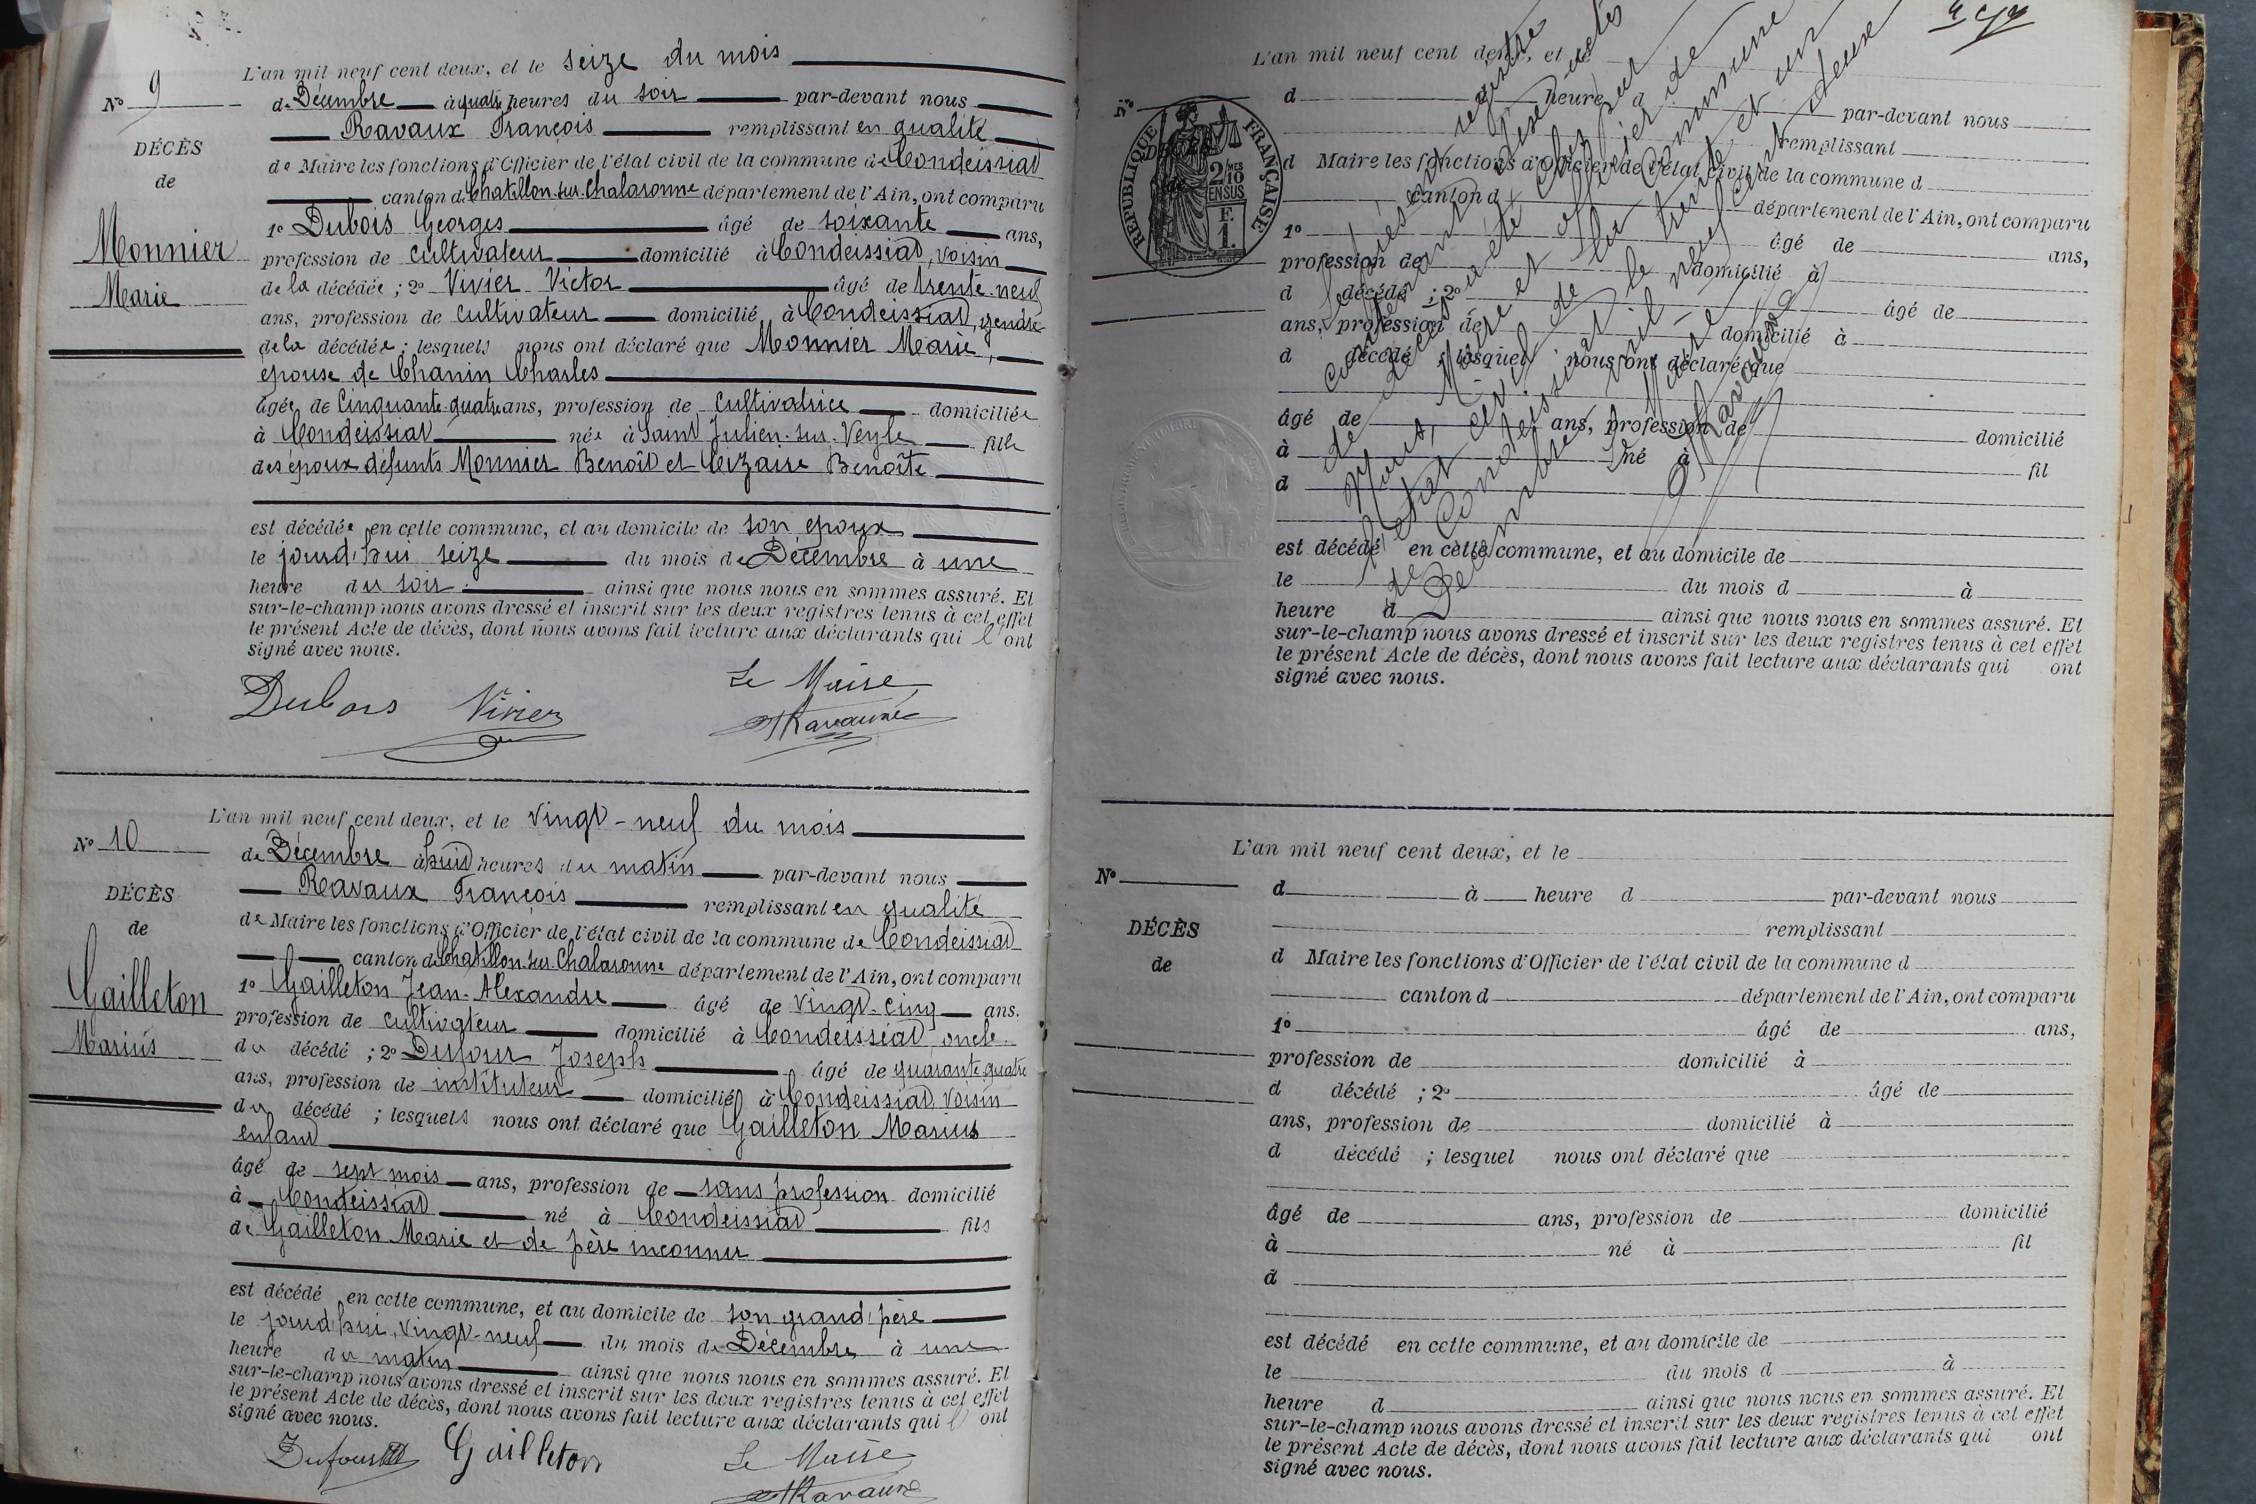 L'an mil neuf cent deux, et le seize du mois
N° 9
de Décembre à quatre heures du soir par-devant nous
Ravaux François remplissant en qualité
DÉCÈS
de
de Maire les fonctions d'Officier de l'état civil de la commune de Condeissiat
canton de Chatillon-sur-Chalaronne département de l'Ain, ont comparu
1° Dubois Georges âgé de soixante ans,
Monnier
Marie
profession de cultivateur domicilié à Condeissiat, voisin
de la décédée ; 2° Vivier Victor âgé de trente-neuf
ans, profession de cultivateur domicilié à Condeissiat, gendre
de la décédée ; lesquels nous ont déclaré que Monnier Marie,
épouse de Chanin Charles
âgée de cinquante-quatre ans, profession de cultivatrice domiciliée
à Condeissiat née à Saint Julien-sur-Veyle fille
des époux défunts Monnier Benoît et Cizaire Benoîte
est décédée en cette commune, et au domicile de son époux
le jourd'hui seize du mois de Décembre à une
heure du soir ainsi que nous nous en sommes assuré. Et
sur-le-champ nous avons dressé et inscrit sur les deux registres tenus à cet effet
le présent Acte de décès, dont nous avons fait lecture aux déclarants qui l'ont
signé avec nous.
Dubois Vivier Le Maire
Ravaux
L'an mil neuf cent deux, et le vingt-neuf du mois
N° 10
de Décembre à huit heures du matin par-devant nous
Ravaux François remplissant en qualité
DÉCÈS
de
de Maire les fonctions d'Officier de l'état civil de la commune de Condeissiat
canton de Chatillon-sur-Chalaronne département de l'Ain, ont comparu
1° Gailleton Jean-Alexandre âgé de vingt-cinq ans.
Gailleton
Marius
profession de cultivateur domicilié à Condeissiat, oncle
du décédé ; 2° Dufour Joseph âgé de quarante-quatre
ans, profession de instituteur domicilié à Condeissiat, voisin
du décédé ; lesquels nous ont déclaré que Gailleton Marius
enfant
âgé de sept mois ans, profession de sans profession domicilié
à Condeissiat né à Condeissiat fils
de Gailleton Marie et de père inconnu
est décédé en cette commune, et au domicile de son grand'père
le jourd'hui, vingt-neuf du mois de Décembre à une
heure du matin ainsi que nous nous en sommes assuré. Et
sur-le-champ nous avons dressé et inscrit sur les deux registres tenus à cet effet
le présent Acte de décès, dont nous avons fait lecture aux déclarants qui l'ont
signé avec nous.
Dufour Gailleton Le Maire
Ravaux
L'an mil neuf cent deux, et le
N°
d à heure d par-devant nous
remplissant
d Maire les fonctions d'Officier de l'état civil de la commune d
canton d département de l'Ain, ont comparu
1° âgé de ans,
profession de domicilié à
d décédé ; 2° âgé de
ans, profession de domicilié à
d décédé ; lesquel nous ont déclaré que
âgé de ans, profession de domicilié
à né à fil
d
est décédé en cette commune, et au domicile de
le du mois d à
heure d ainsi que nous nous en sommes assuré. Et
sur-le-champ nous avons dressé et inscrit sur les deux registres tenus à cet effet
le présent Acte de décès, dont nous avons fait lecture aux déclarants qui ont
signé avec nous.
RÉPUBLIQUE FRANÇAISE
2/10 EN SUS
F.
1.
registre
contenant actes
de décès a été clos par
Nous, Maire et officier de
l'état civil de la commune
de Condeissiat le trente et un
Décembre mil neuf cent deux
Le Maire
Ravaux
L'an mil neuf cent deux, et le
N°
d à heure d par-devant nous
DÉCÈS
de
remplissant
d Maire les fonctions d'Officier de l'état civil de la commune d
canton d département de l'Ain, ont comparu
1° âgé de ans,
profession de domicilié à
d décédé ; 2° âgé de
ans, profession de domicilié à
d décédé ; lesquel nous ont déclaré que
âgé de ans, profession de domicilié
à né à fil
d
est décédé en cette commune, et au domicile de
le du mois d à
heure d ainsi que nous nous en sommes assuré. Et
sur-le-champ nous avons dressé et inscrit sur les deux registres tenus à cet effet
le présent Acte de décès, dont nous avons fait lecture aux déclarants qui ont
signé avec nous.